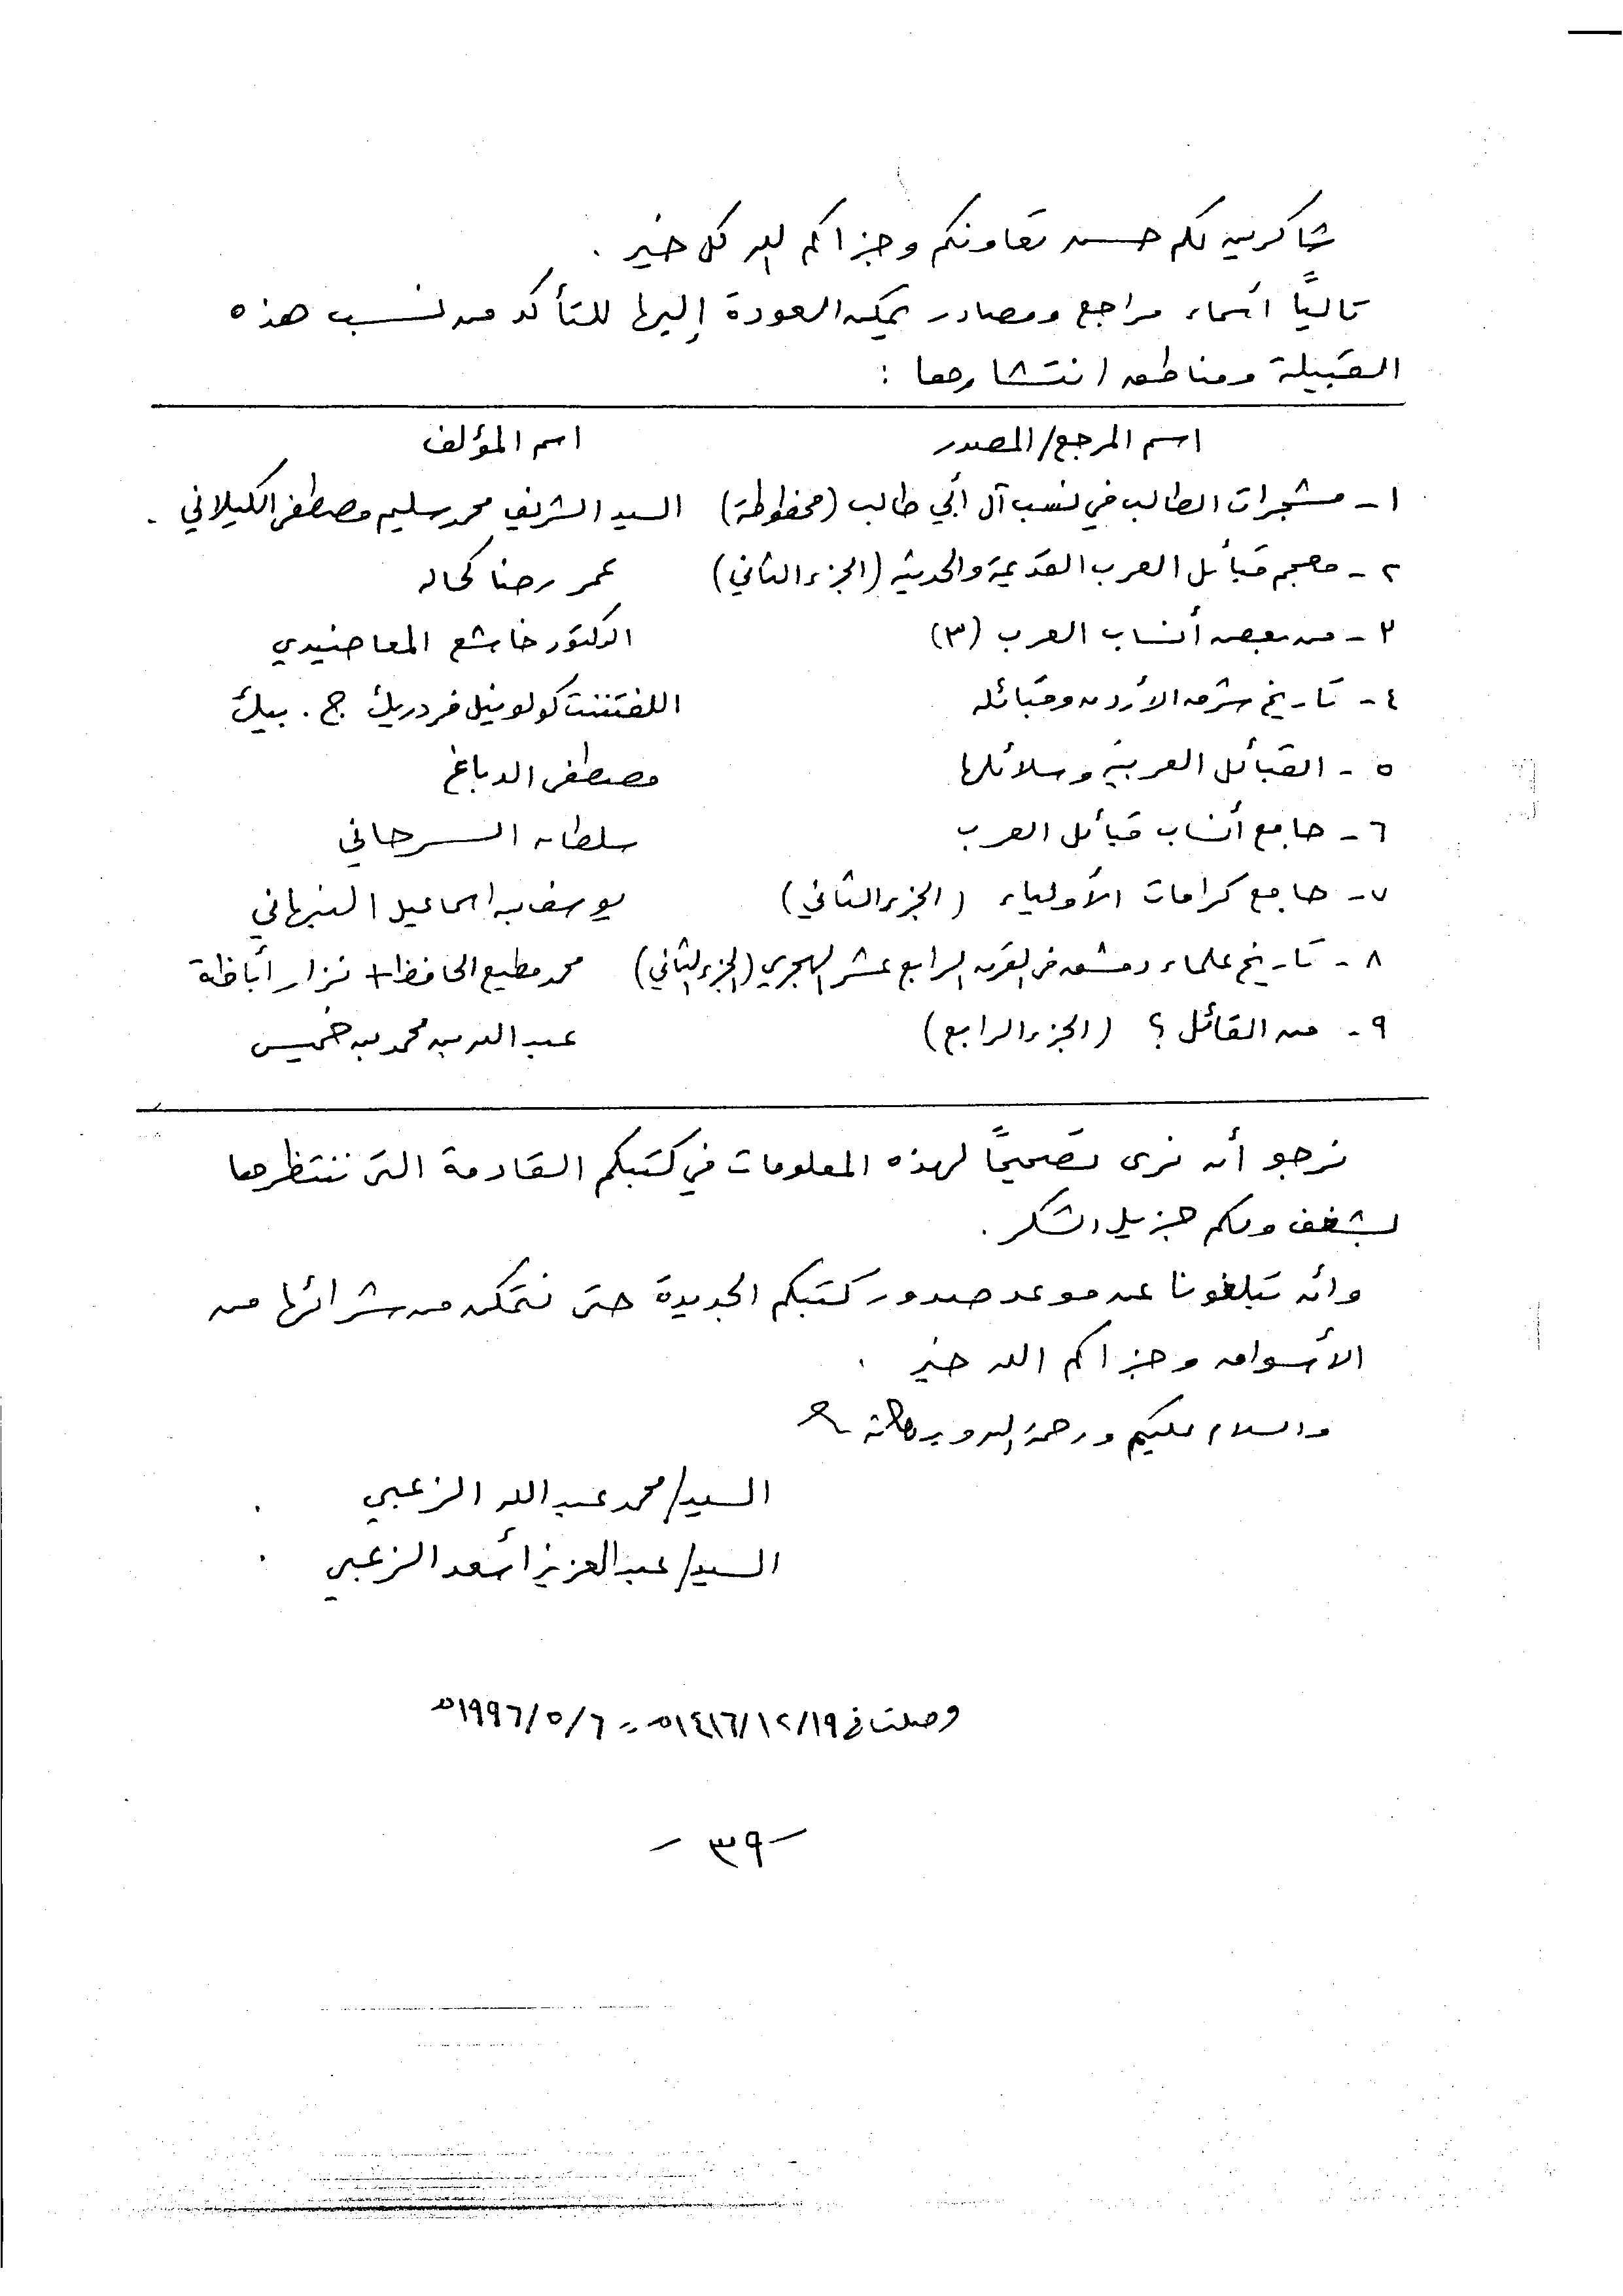 شاكرين لكم حسن تعاونكم وجزاكم الله كل خير .
تاليًا أسماء مراجع ومصادر يمكن العودة إليها للتأكد من نسب هذه
القبيلة ومناطق انتشارها :
اسم المرجع/المصدر اسم المؤلف
١- مشجرات الطالب في نسب آل أبي طالب (مخطوطة) السيد الشريف محمد سليم مصطفى الكيلاني .
٢- معجم قبائل العرب القديمة والحديثة (الجزء الثاني) عمر رضا كحاله
٣- من بعض أنساب العرب (٣) الدكتور خاشع المعاضيدي
٤- تاريخ شرق الأردن وقبائله اللفتننت كولونيل فردريك ج. بيك
٥- القبائل العربية وسلائلها مصطفى الدباغ
٦- جامع أنساب قبائل العرب سلطان السرحاني
٧- جامع كرامات الأولياء (الجزء الثاني) يوسف بن اسماعيل النبهاني
٨- تاريخ علماء دمشق في القرن الرابع عشر الهجري (الجزء الثاني) محمد مطيع الحافظ + نزار أباظة
٩- من القائل ؟ (الجزء الرابع) عبد الله بن محمد بن خميس
نرجو أن نرى تصحيحًا لهذه المعلومات في كتبكم القادمة التي ننتظرها
بشغف ولكم جزيل الشكر .
وأن تبلغونا عن موعد صدور كتبكم الجديدة حتى نتمكن من شرائها من
الأسواق وجزاكم الله خير .
والسلام عليكم ورحمة الله وبركاته
السيد/ محمد عبد الله الزعبي
السيد/ عبد العزيز أسعد الزعبي
وصلت في ١٤١٦/١٢/١٩هـ = ١٩٩٦/٥/٦م
- ٣٩ -